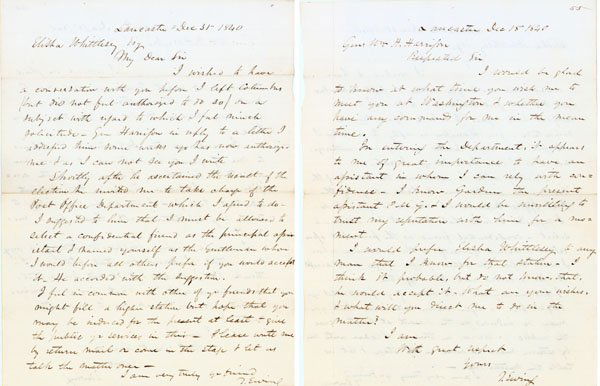 Lancaster Dec 31st 1840
Elisha Whittlesey Esq
My Dear Sir
I wished to have
a conversation with you before I left Columbus
(but did not feel authorized to do so) on a
subject with regard to which I feel much
solicitude - Gen Harrison in reply to a letter I
addressed him some weeks ago has now authorized
me & as I can not see you I write.
Shortly after he ascertained the result of the
election he invited me to take charge of the
Post Office Department - which I agreed to do -
I suggested to him that I must be allowed to
select a confidential friend as the principal assistant
& I named yourself as the Gentleman whom
I would before all others prefer if you would accept
it. He accorded with the suggestion.
I feel in common with other of your friends that you
might fill a higher station but hope that you
may be induced for the present at least to give
the public your services in this - Please write me
by return mail or come in the stage & let us
talk the matter over -
I am very truly your friend
T. Ewing
55-
Lancaster Dec 15th 1840
Gen Wm H. Harrison
Respected Sir
I would be glad
to know at what time you wish me to
meet you at Washington & whether you
have any command for me in the mean
time.
On entering the Department it appears
to me of great importance to have an
assistant in whom I can rely with confidence
- I know Gardner the present
assistant P.M.G. - I would be unwilling to
trust my reputation with him for a moment
I would prefer Elisha Whittlesey to any
man that I know for that station - I
think it probable but do not know that
he would accept it. What are your wishes,
& what will you direct me to do in the
matter?
I am
With great respect
Yours
T. Ewing